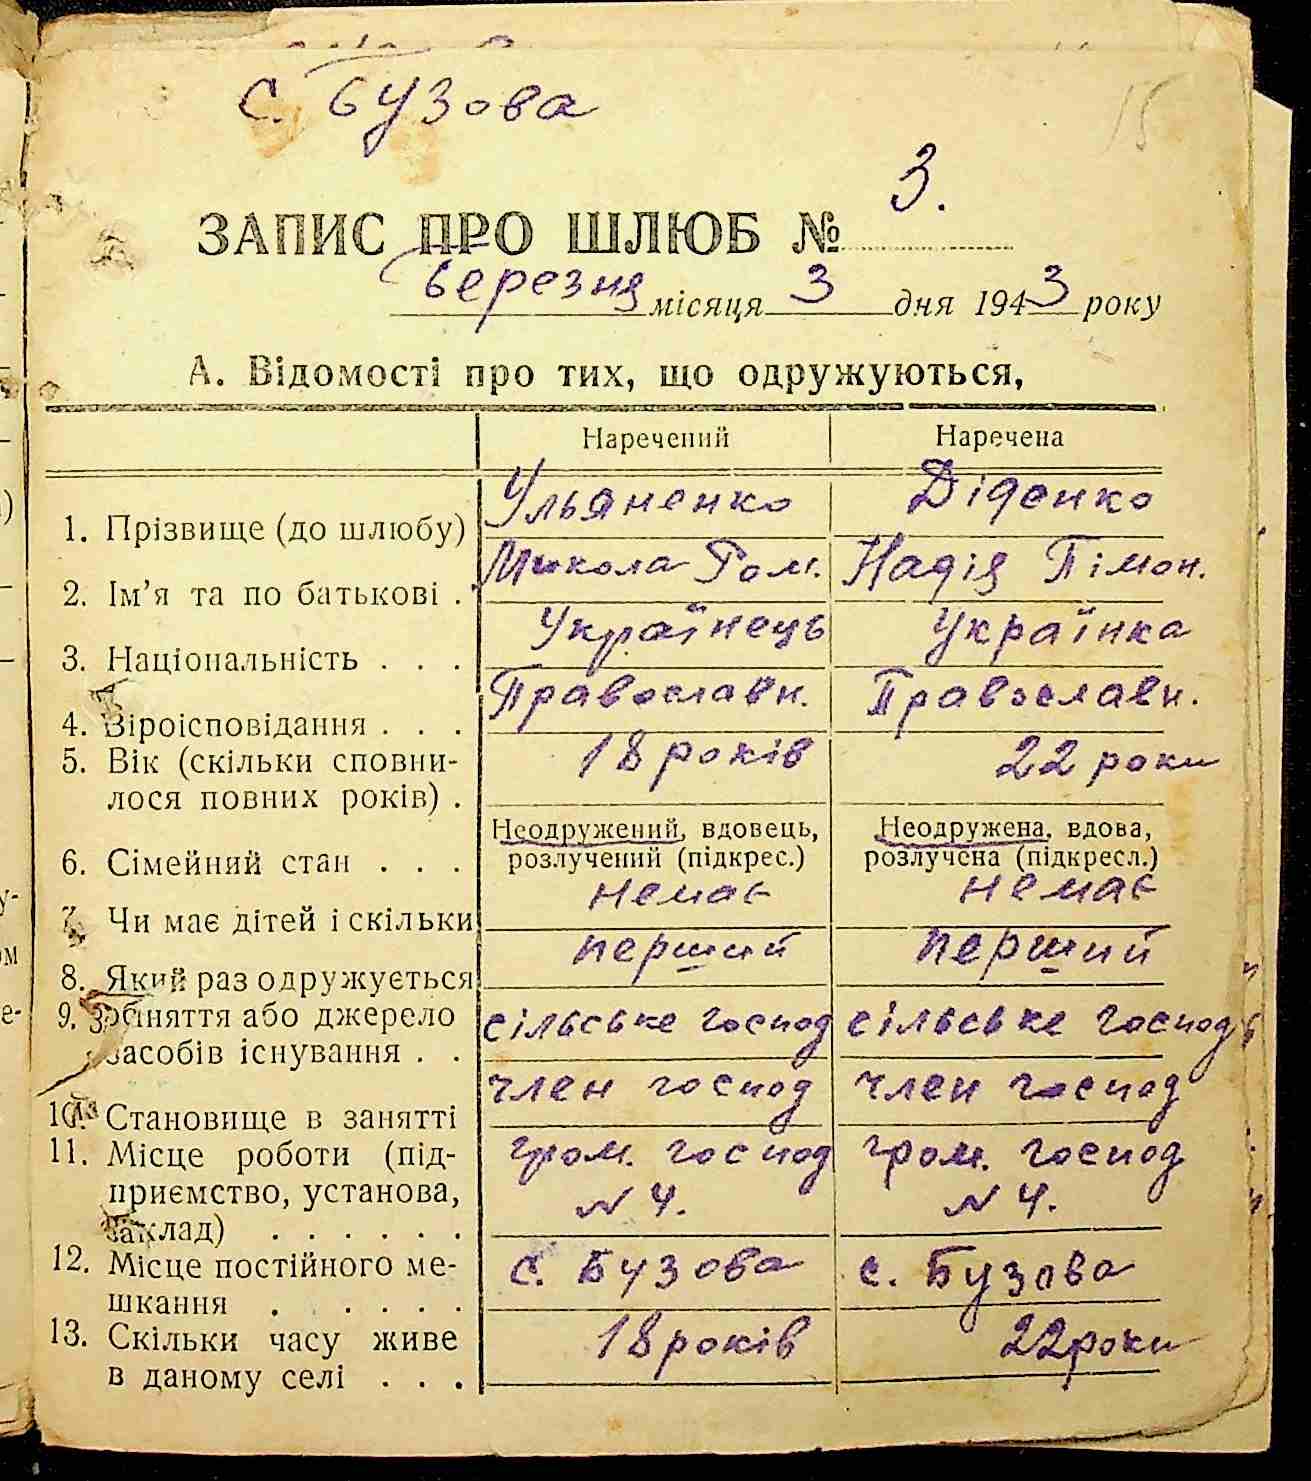 с. Бузова
15
3.
ЗАПИС ПРО ШЛЮБ №
Березня місяця 3 дня 1943 року
А. Відомості про тих, що одружуються,
Наречений Наречена
1. Прізвище (до шлюбу) Ульяненко Діденко
2. Ім'я та по батькові . Микола Ром. Надія Пімон.
3. Національність . . . Українець Українка
4. Віроісповідання . . . Православн. Православн.
5. Вік (скільки сповни- 18 років 22 роки
лося повних років) .
Неодружений, вдовець, Неодружена, вдова,
розлучений (підкрес.) розлучена (підкресл.)
6. Сімейний стан . . .
7. Чи має дітей і скільки немає немає
8. Який раз одружується перший перший
9. Заняття або джерело сільське господ сільське господ
засобів існування . .
10. Становище в занятті член господ член господ
11. Місце роботи (під- гром. господ гром. господ
приємство, установа, N 4. N 4.
заклад) . . . . . .
12. Місце постійного ме- с. Бузова с. Бузова
шкання . . . . . .
13. Скільки часу живе 18 років 22 роки
в даному селі . . .